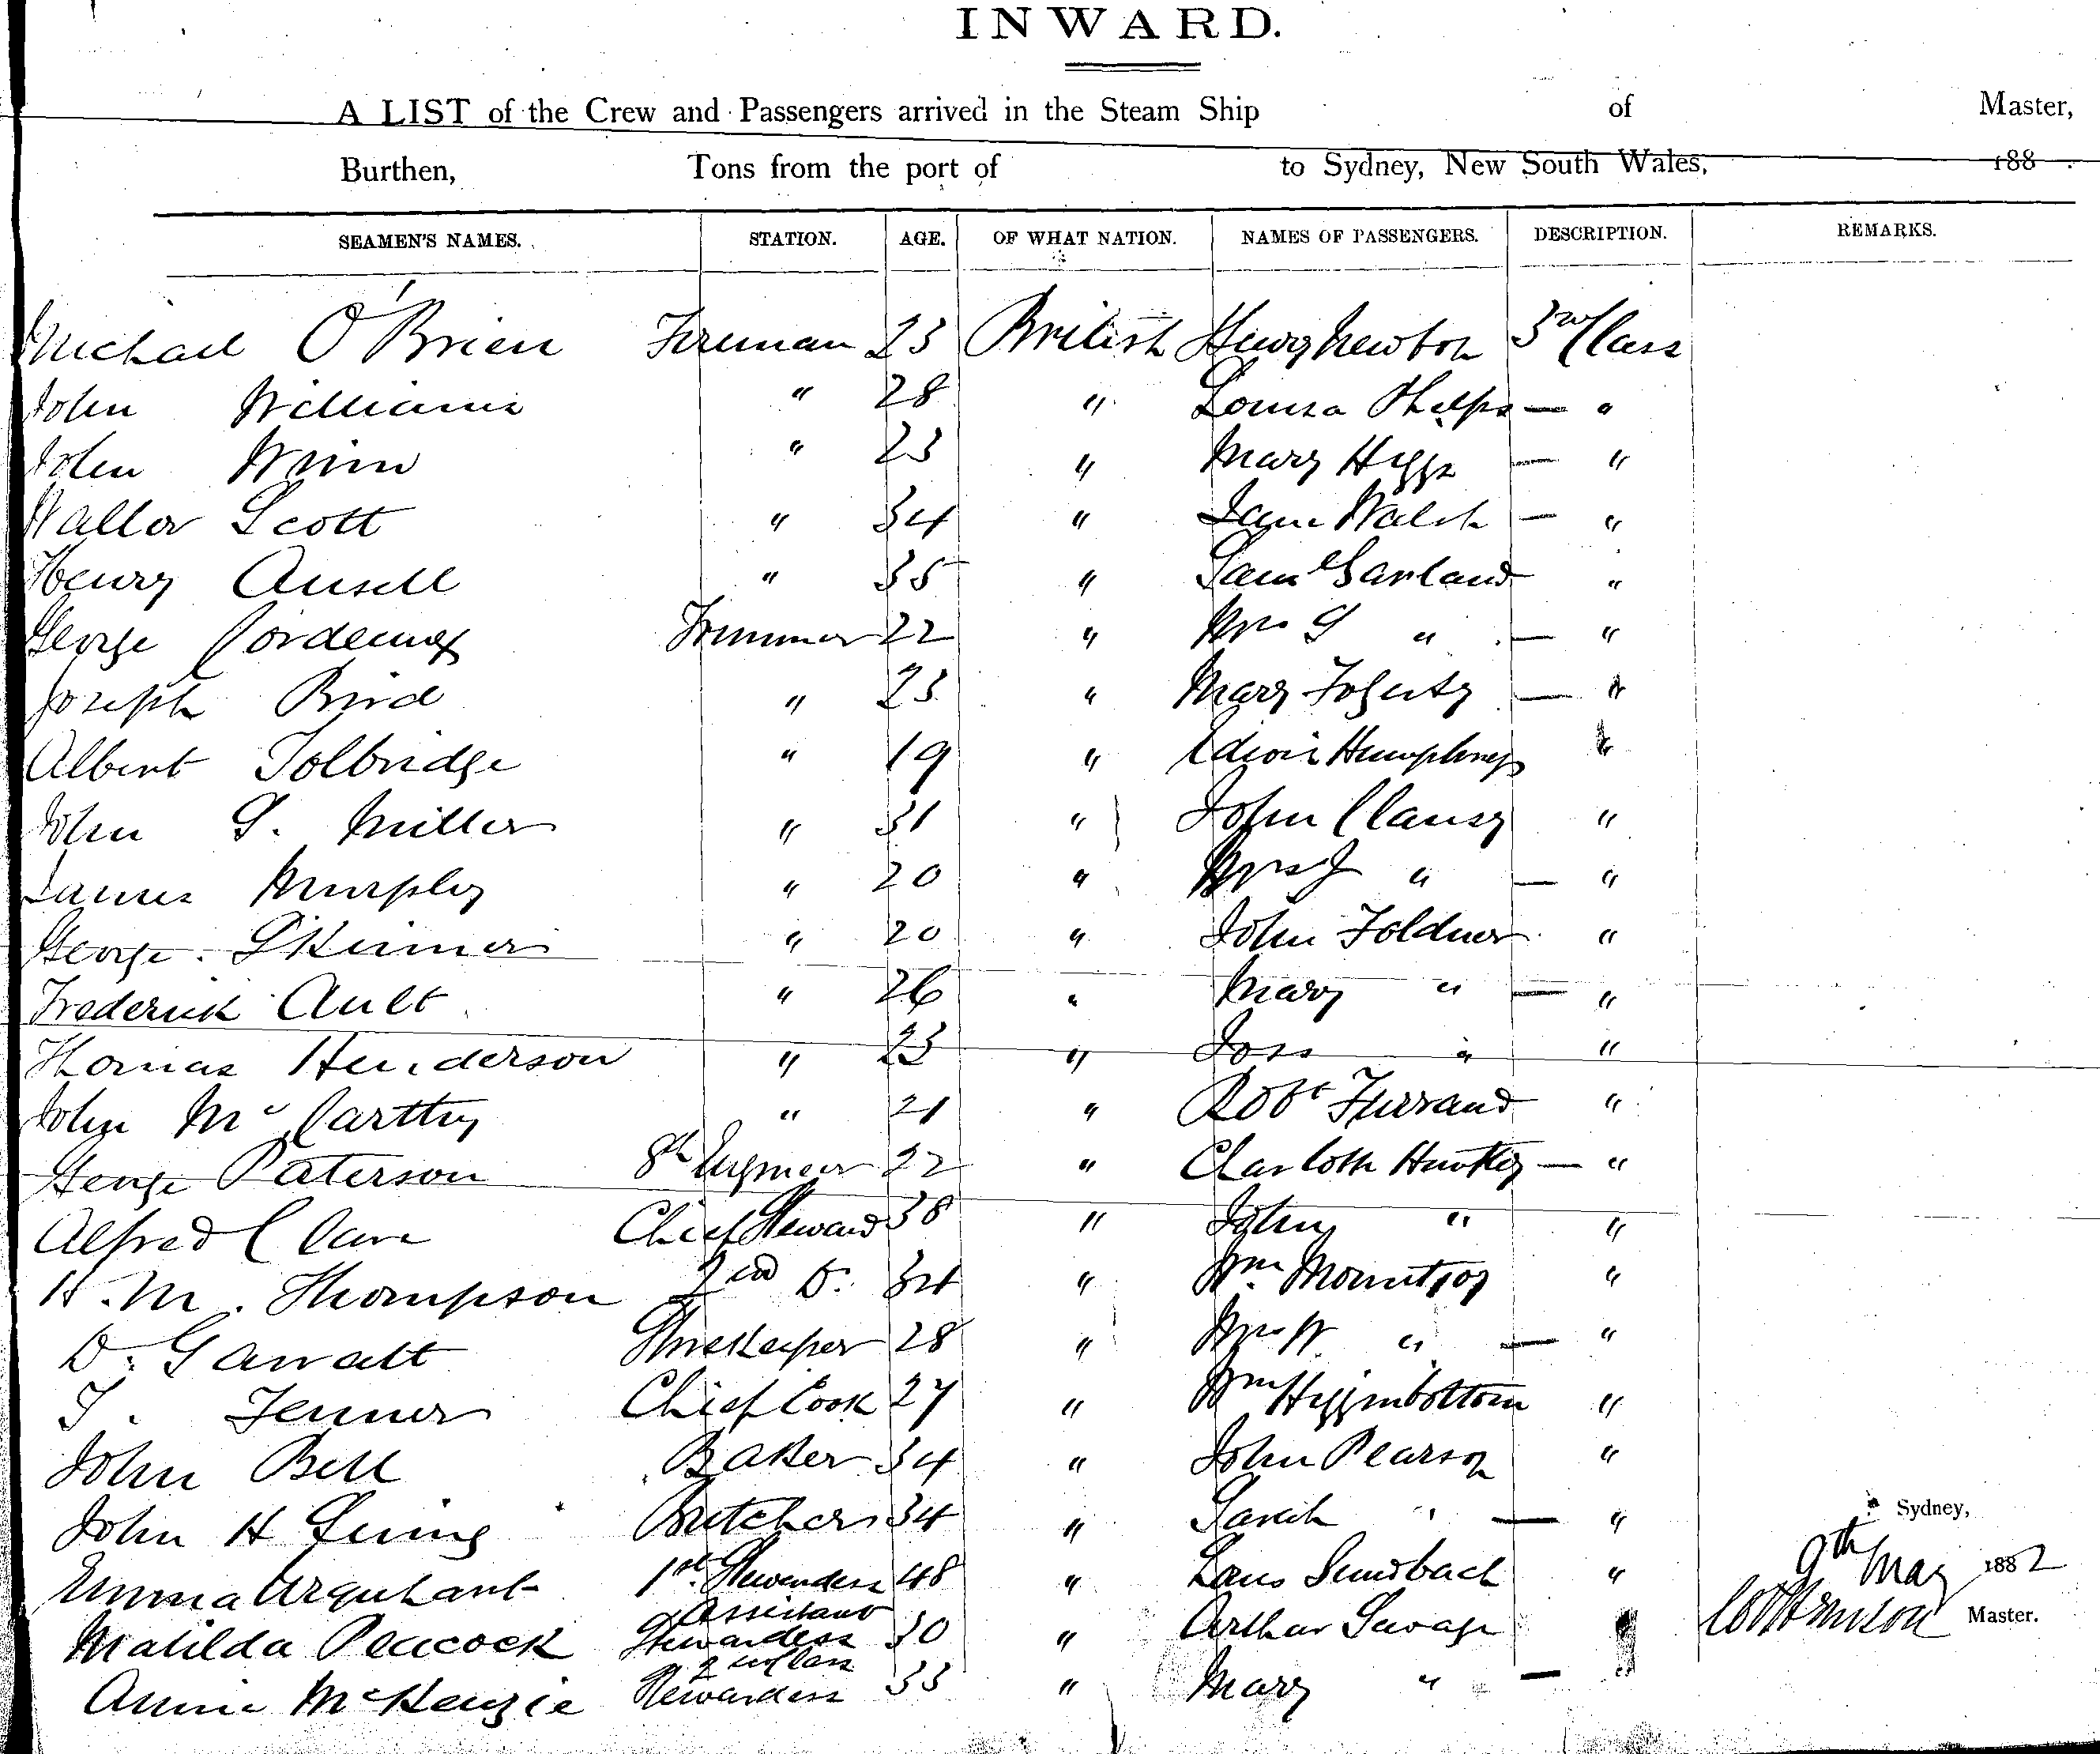 INWARD.
A LIST of the Crew and Passengers arrived in the Steam Ship of Master,
Burthen, Tons from the port of to Sydney, New South Wales, 188 .
SEAMEN'S NAMES. STATION. AGE. OF WHAT NATION. NAMES OF PASSENGERS. DESCRIPTION. REMARKS.
Michael O'Brien Fireman 23 British Henry Newton 3rd Class
John Williams " 28 " Louisa Phelps — "
John " 23 " Mary Higgs — "
Walter Scott " 34 " Jane Walsh — "
Henry Ansell " 35 " Saml Garland "
George Trimmer 22 " Mrs S " — "
Joseph Bird " 23 " Mary Fogerty — "
Albert Tolbridge " 19 " Edwin Humphreys "
John S. Miller " 31 " John Clansy "
James Murphy " 20 " Mrs J " — "
George Skinner " 20 " John Foldner "
Frederick Ault " 26 " Mary " — "
Thomas Henderson " 23 " Joss " "
John McCarthy " 21 " Robt Furrand "
George Paterson 8th Engineer 22 " Charlotte — "
Alfred Clare Chief Steward 38 " John " "
H. M. Thompson 2nd Do. 34 " Wm "
D. Garratt Storekeeper 28 " Mrs W " — "
T. Fenner Chief Cook 27 " Wm Higginbottom "
John Bell Baker 34 " John Pearson "
John H Butcher 34 " Sarah " — "
Sydney,
Emma Urquhart 1st Stewardess 48 " Lars Sundbach "
9th May 1882
Matilda Peacock Assistant Stewardess 30 " Arthur Savage "
Master.
Annie McKenzie 2nd Class Stewardess 33 " Mary " — "